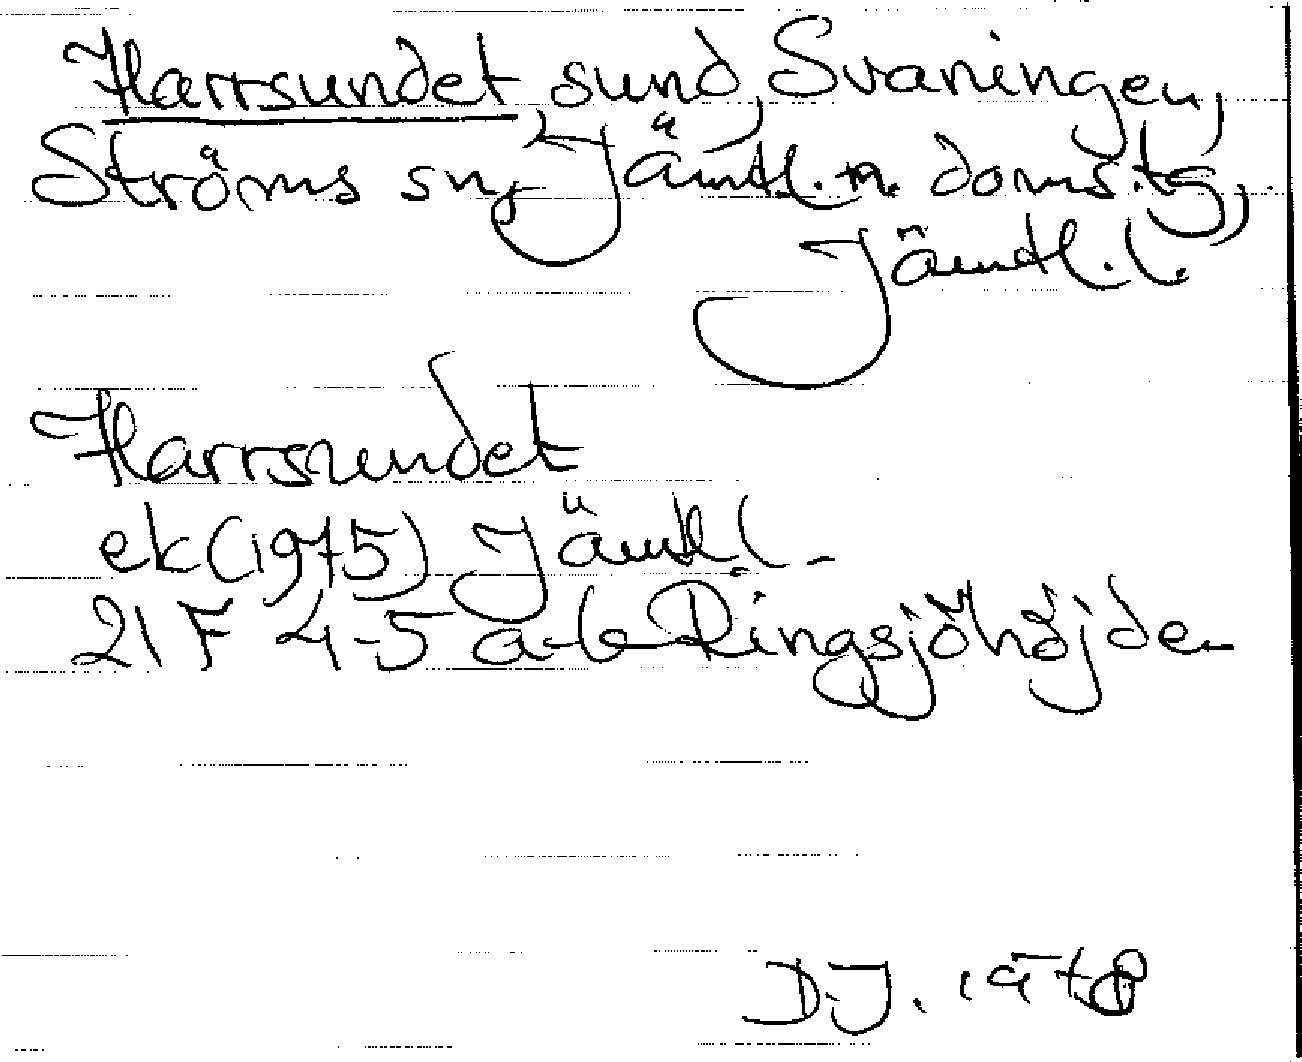 Harrsundet sund, Svaningen,
Ströms sn, Jämtl. n. doms.tg,
Jämtl. l.
Harrsundet
ek (1975) Jämtl l.
21 F 4-5 a-b Ringsjöhöjden
D.J. 1978